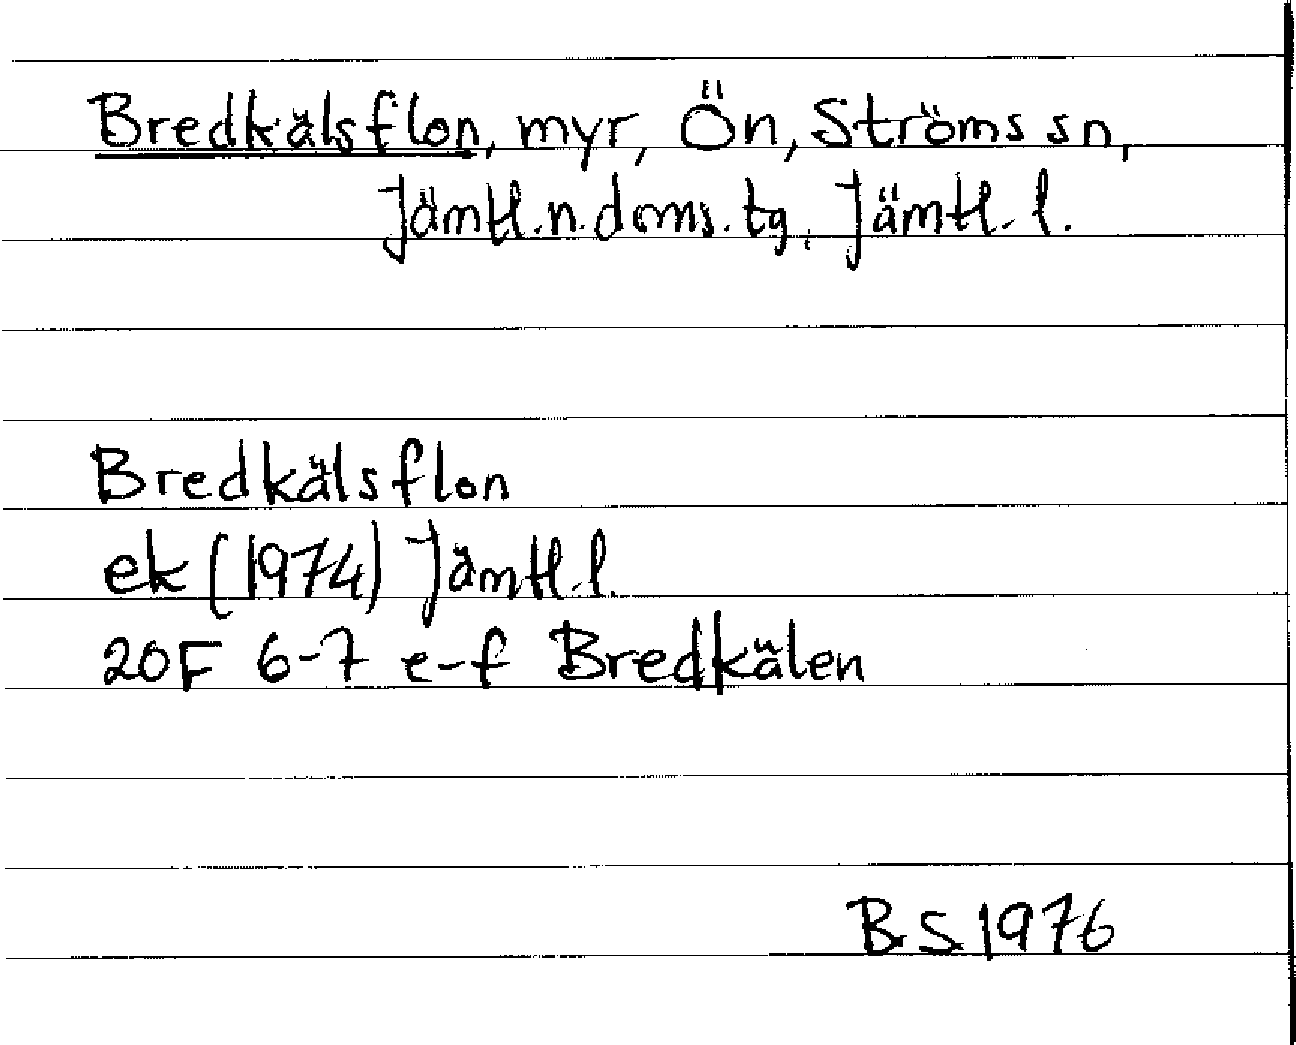 Bredkälsflon, myr, Ön, Ströms sn,
Jämtl.n.doms.tg, Jämtl.l.
Bredkälsflon
ek (1974) Jämtl.l.
20F 6-7 e-f Bredkälen
B.S. 1976